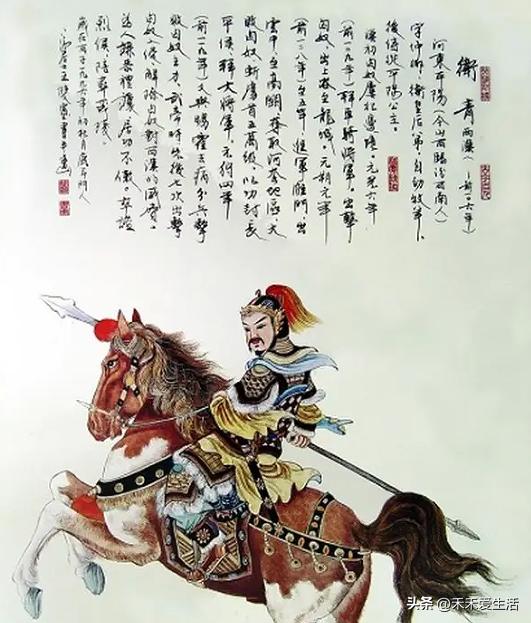 衛青 西漢（—前一〇六年）
河東平陽（今山西臨汾西南人）
字仲卿、衛皇后弟、自幼牧羊、
後侍從平陽公主。
漢初匈奴屢犯邊陲。元光六年
（前一二九年）拜車騎將軍、出擊
匈奴、出上谷至龍城。元朔元年
（前一二八年）至五年 進軍雁門、出
雲中至高闕 獲取河套地區、大
敗匈奴、斬虜首五萬級。以功封長
平侯、拜大將軍。元狩四年
（前一一九年）又與霍去病分兵擊
敗匈奴主力、武帝時先後七次出擊
匈奴、解除匈奴對西漢的威脅。
為人謙恭禮讓、居功不傲。卒謚
烈侯、陪葬茂陵。
歲在丙子一九九六年
頭条 @禾禾爱生活